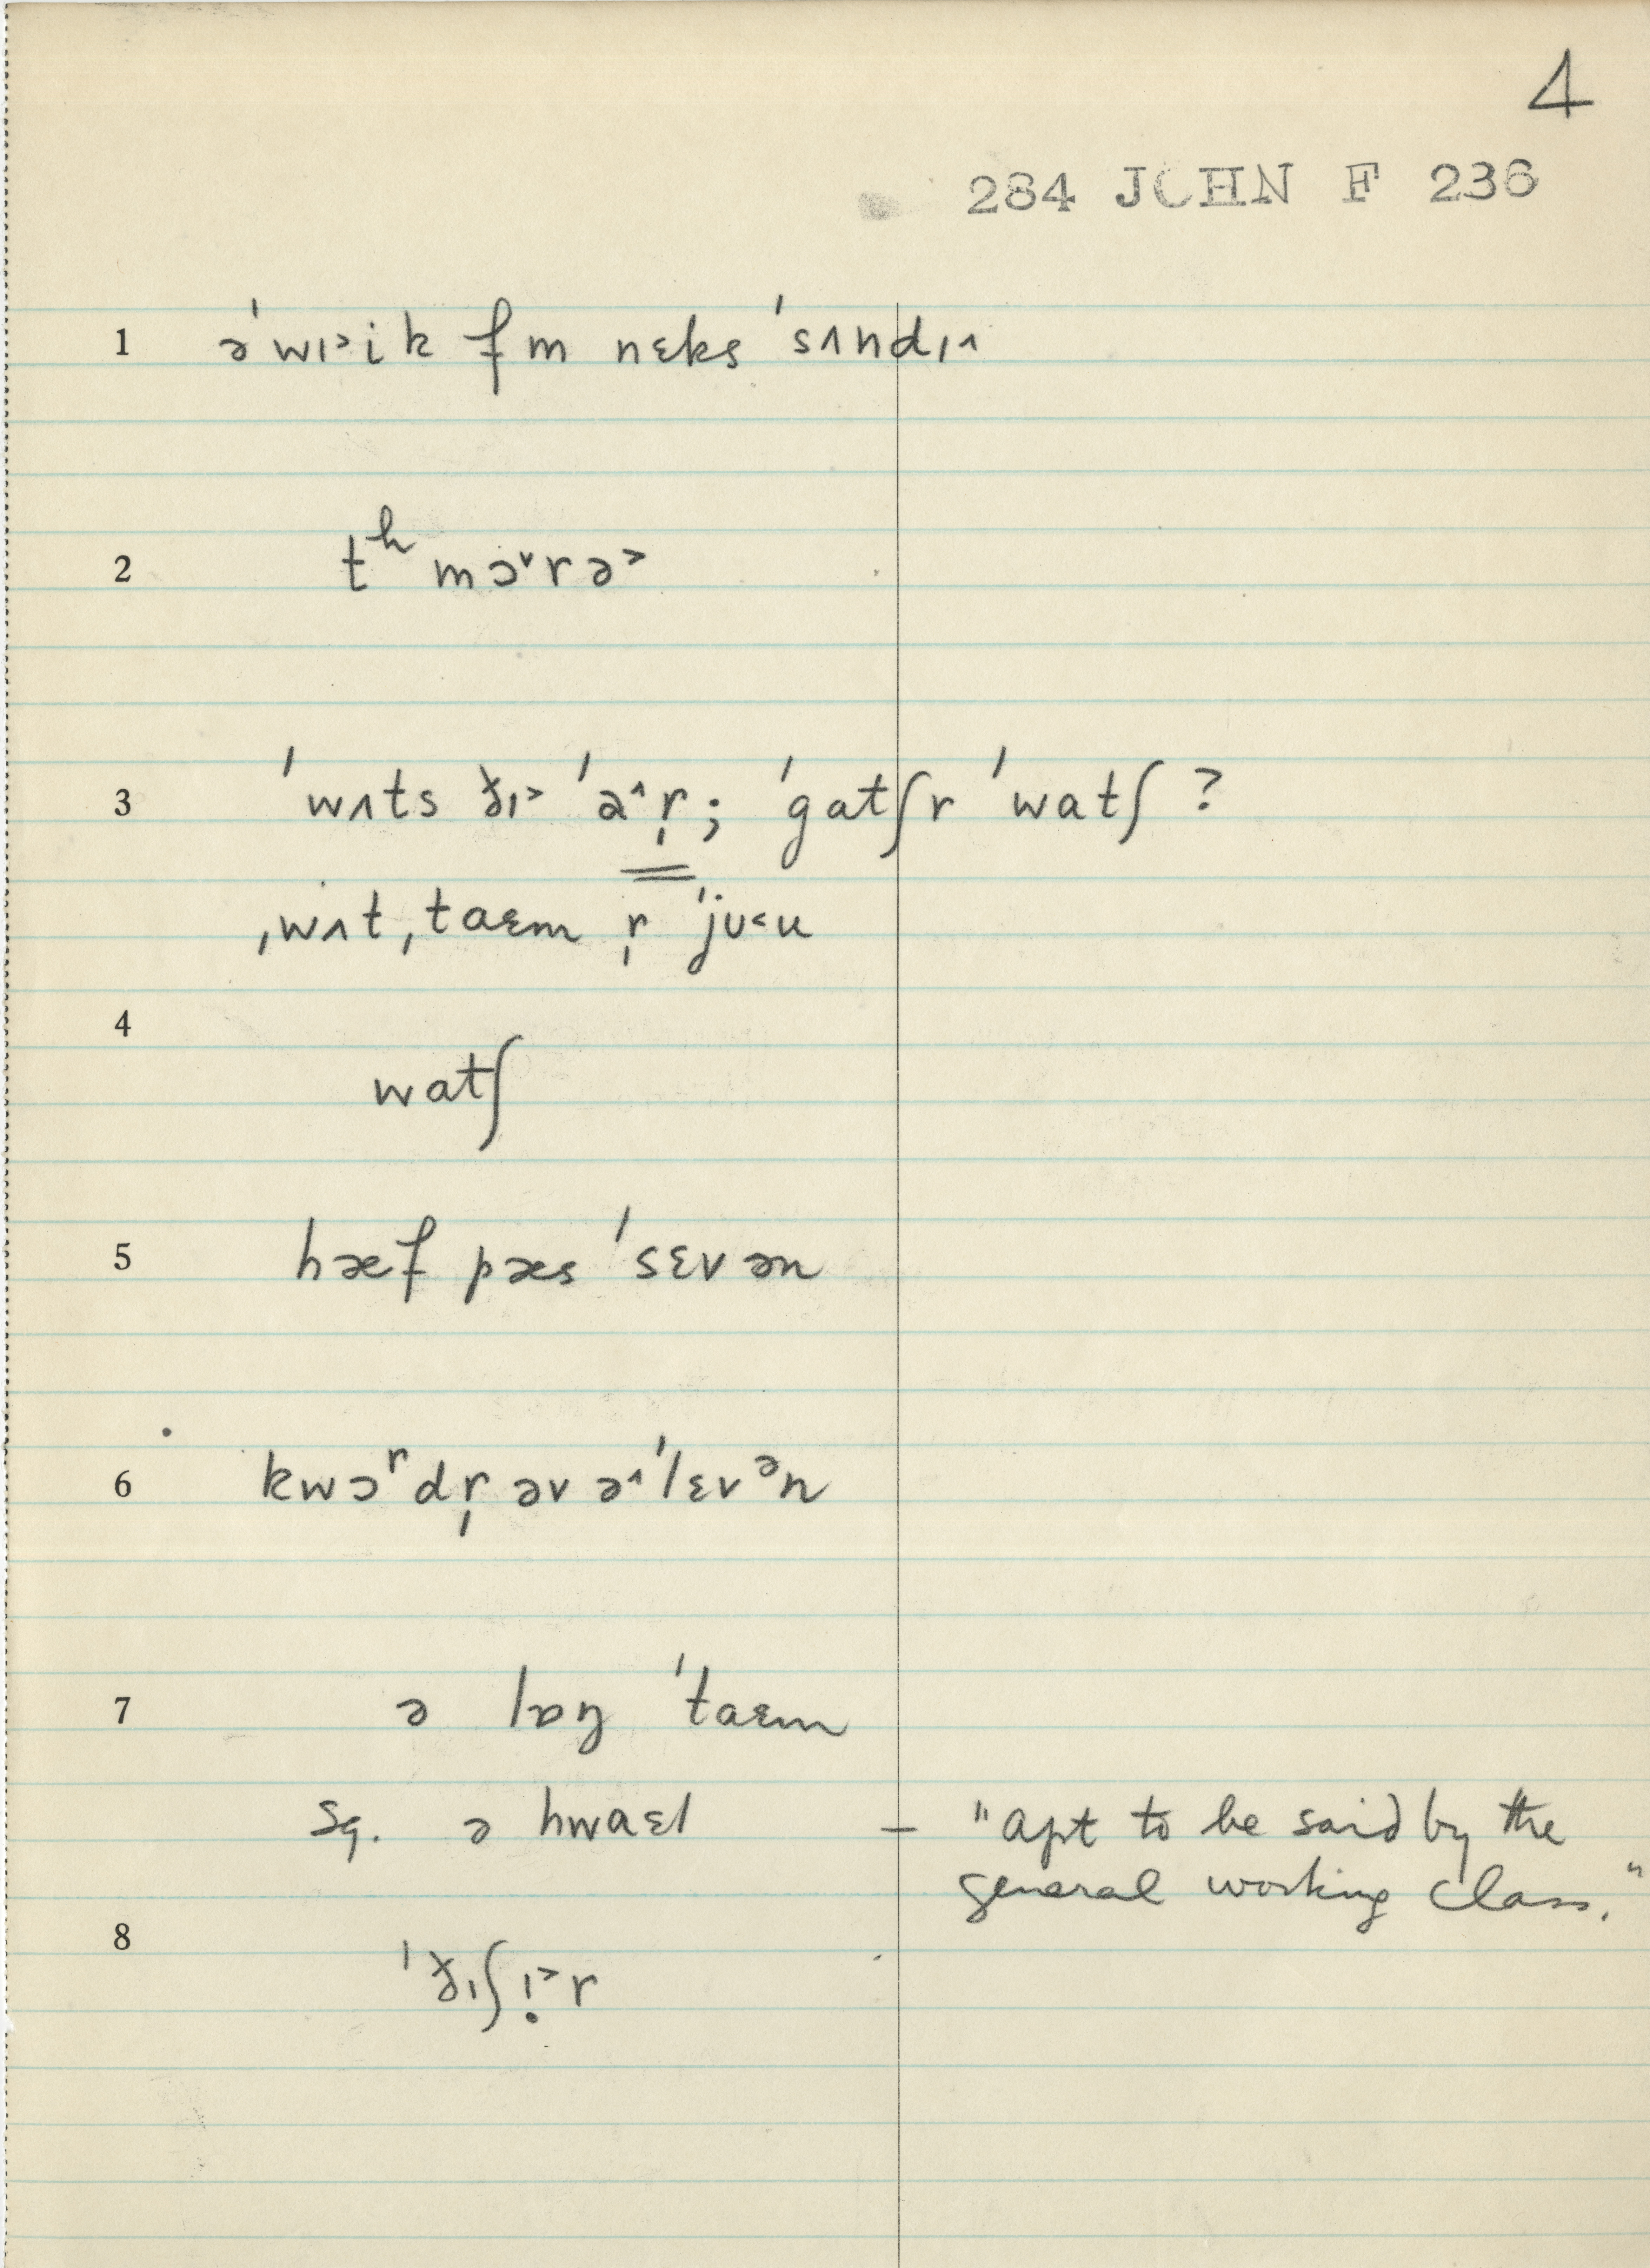 4
284 JOHN F 236
1 əˈwɪ˃ik fm nɛks ˈsʌndɪ˄
2 tʰ mɔ˅rə˃
3 ˈwʌts ðɪ˃ ˈa˄r̩; ˈgatʃr ˈwatʃ ?
ˌwʌtˌtaɛm r̩ ˈjʊ˂u
4
watʃ
5 hæf pæs ˈsɛvən
6 kwɔʳdr̩ əv ə˄ˈlɛvᵊn
7 ə lɒŋ ˈtaɛm
sq. ə hwaɛl – "apt to be said by the
general working class."
8
ˈðɪʃɪ̣˃r